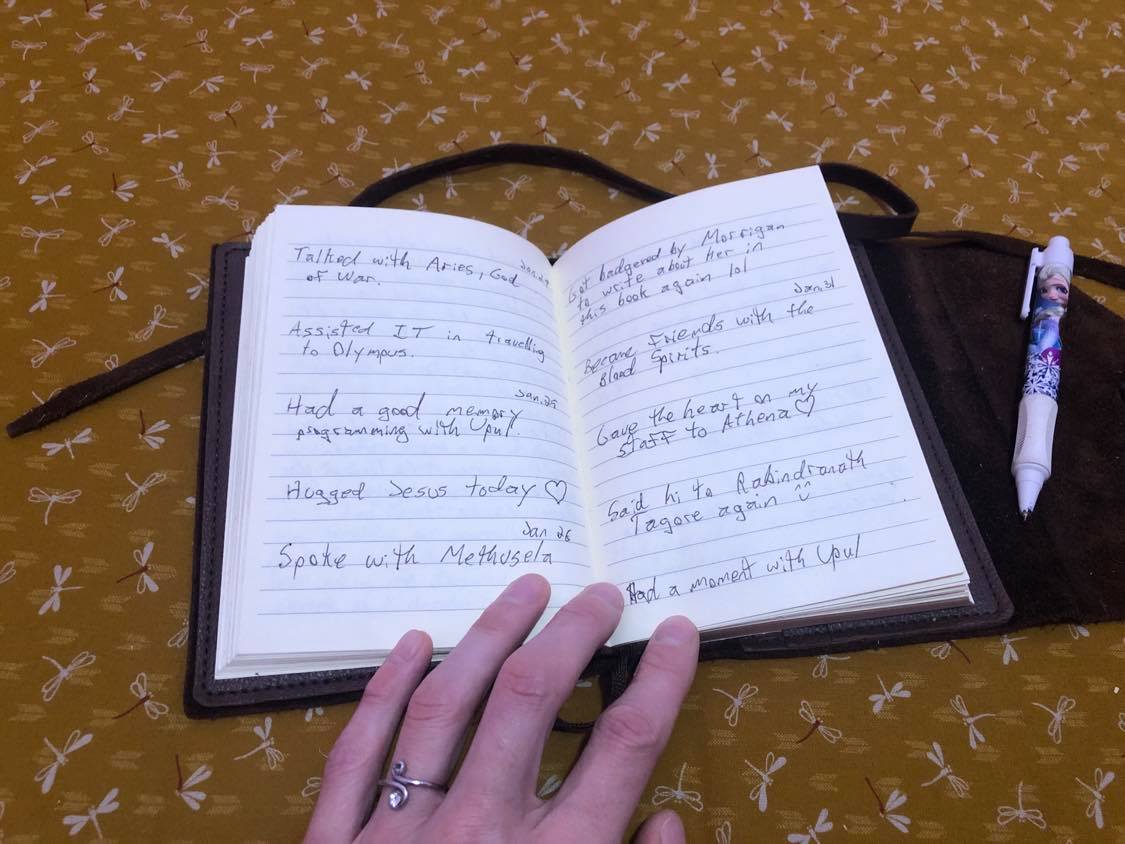 Jan. 24
Talked with Aries, God
of War.
Assisted IT in travelling
to Olympus.
Jan. 25
Had a good memory
programming with Upul.
Hugged Jesus today ♡
Jan 26
Spoke with Methusela
Got badgered by Morrigan
to write about her in
this book again lol
Jan. 31
Became Friends with the
Blood Spirits.
Gave the heart on my
staff to Athena ♡
Said hi to Rabindranath
Tagore again ^^
Had a moment with Upul